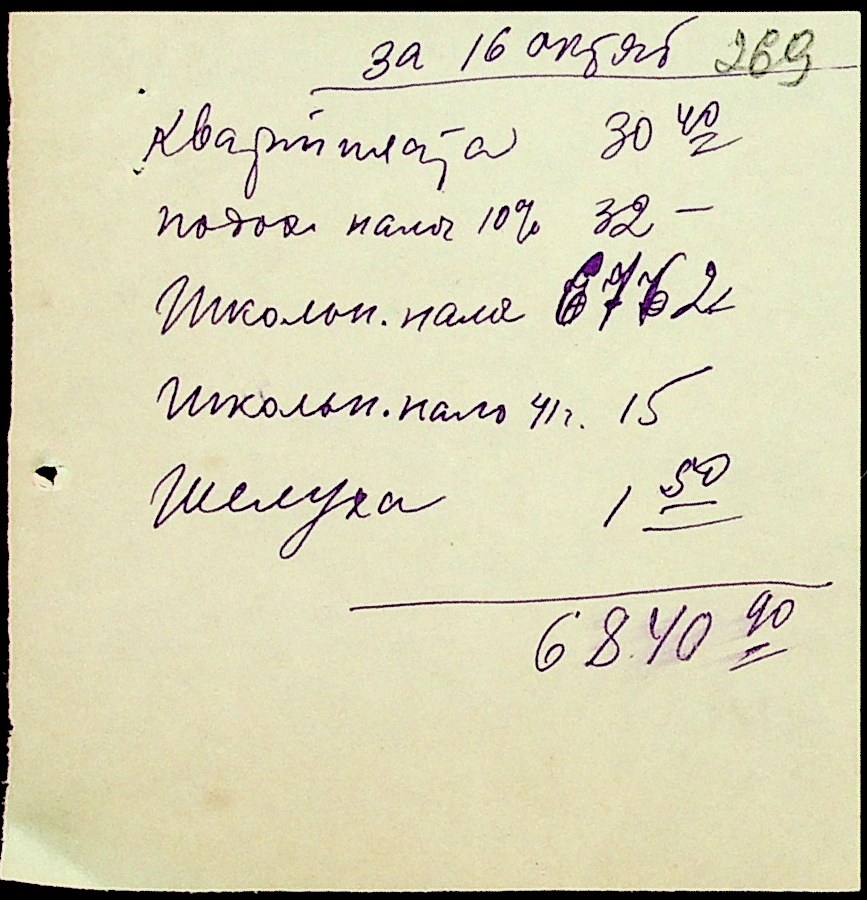 за 16 октяб 269
Квартплата 30 40
подох. налог 10% 32 —
Школьн. нало 6762
Школьн. нало 41г. 15
Шелуха 1 50
6840 90